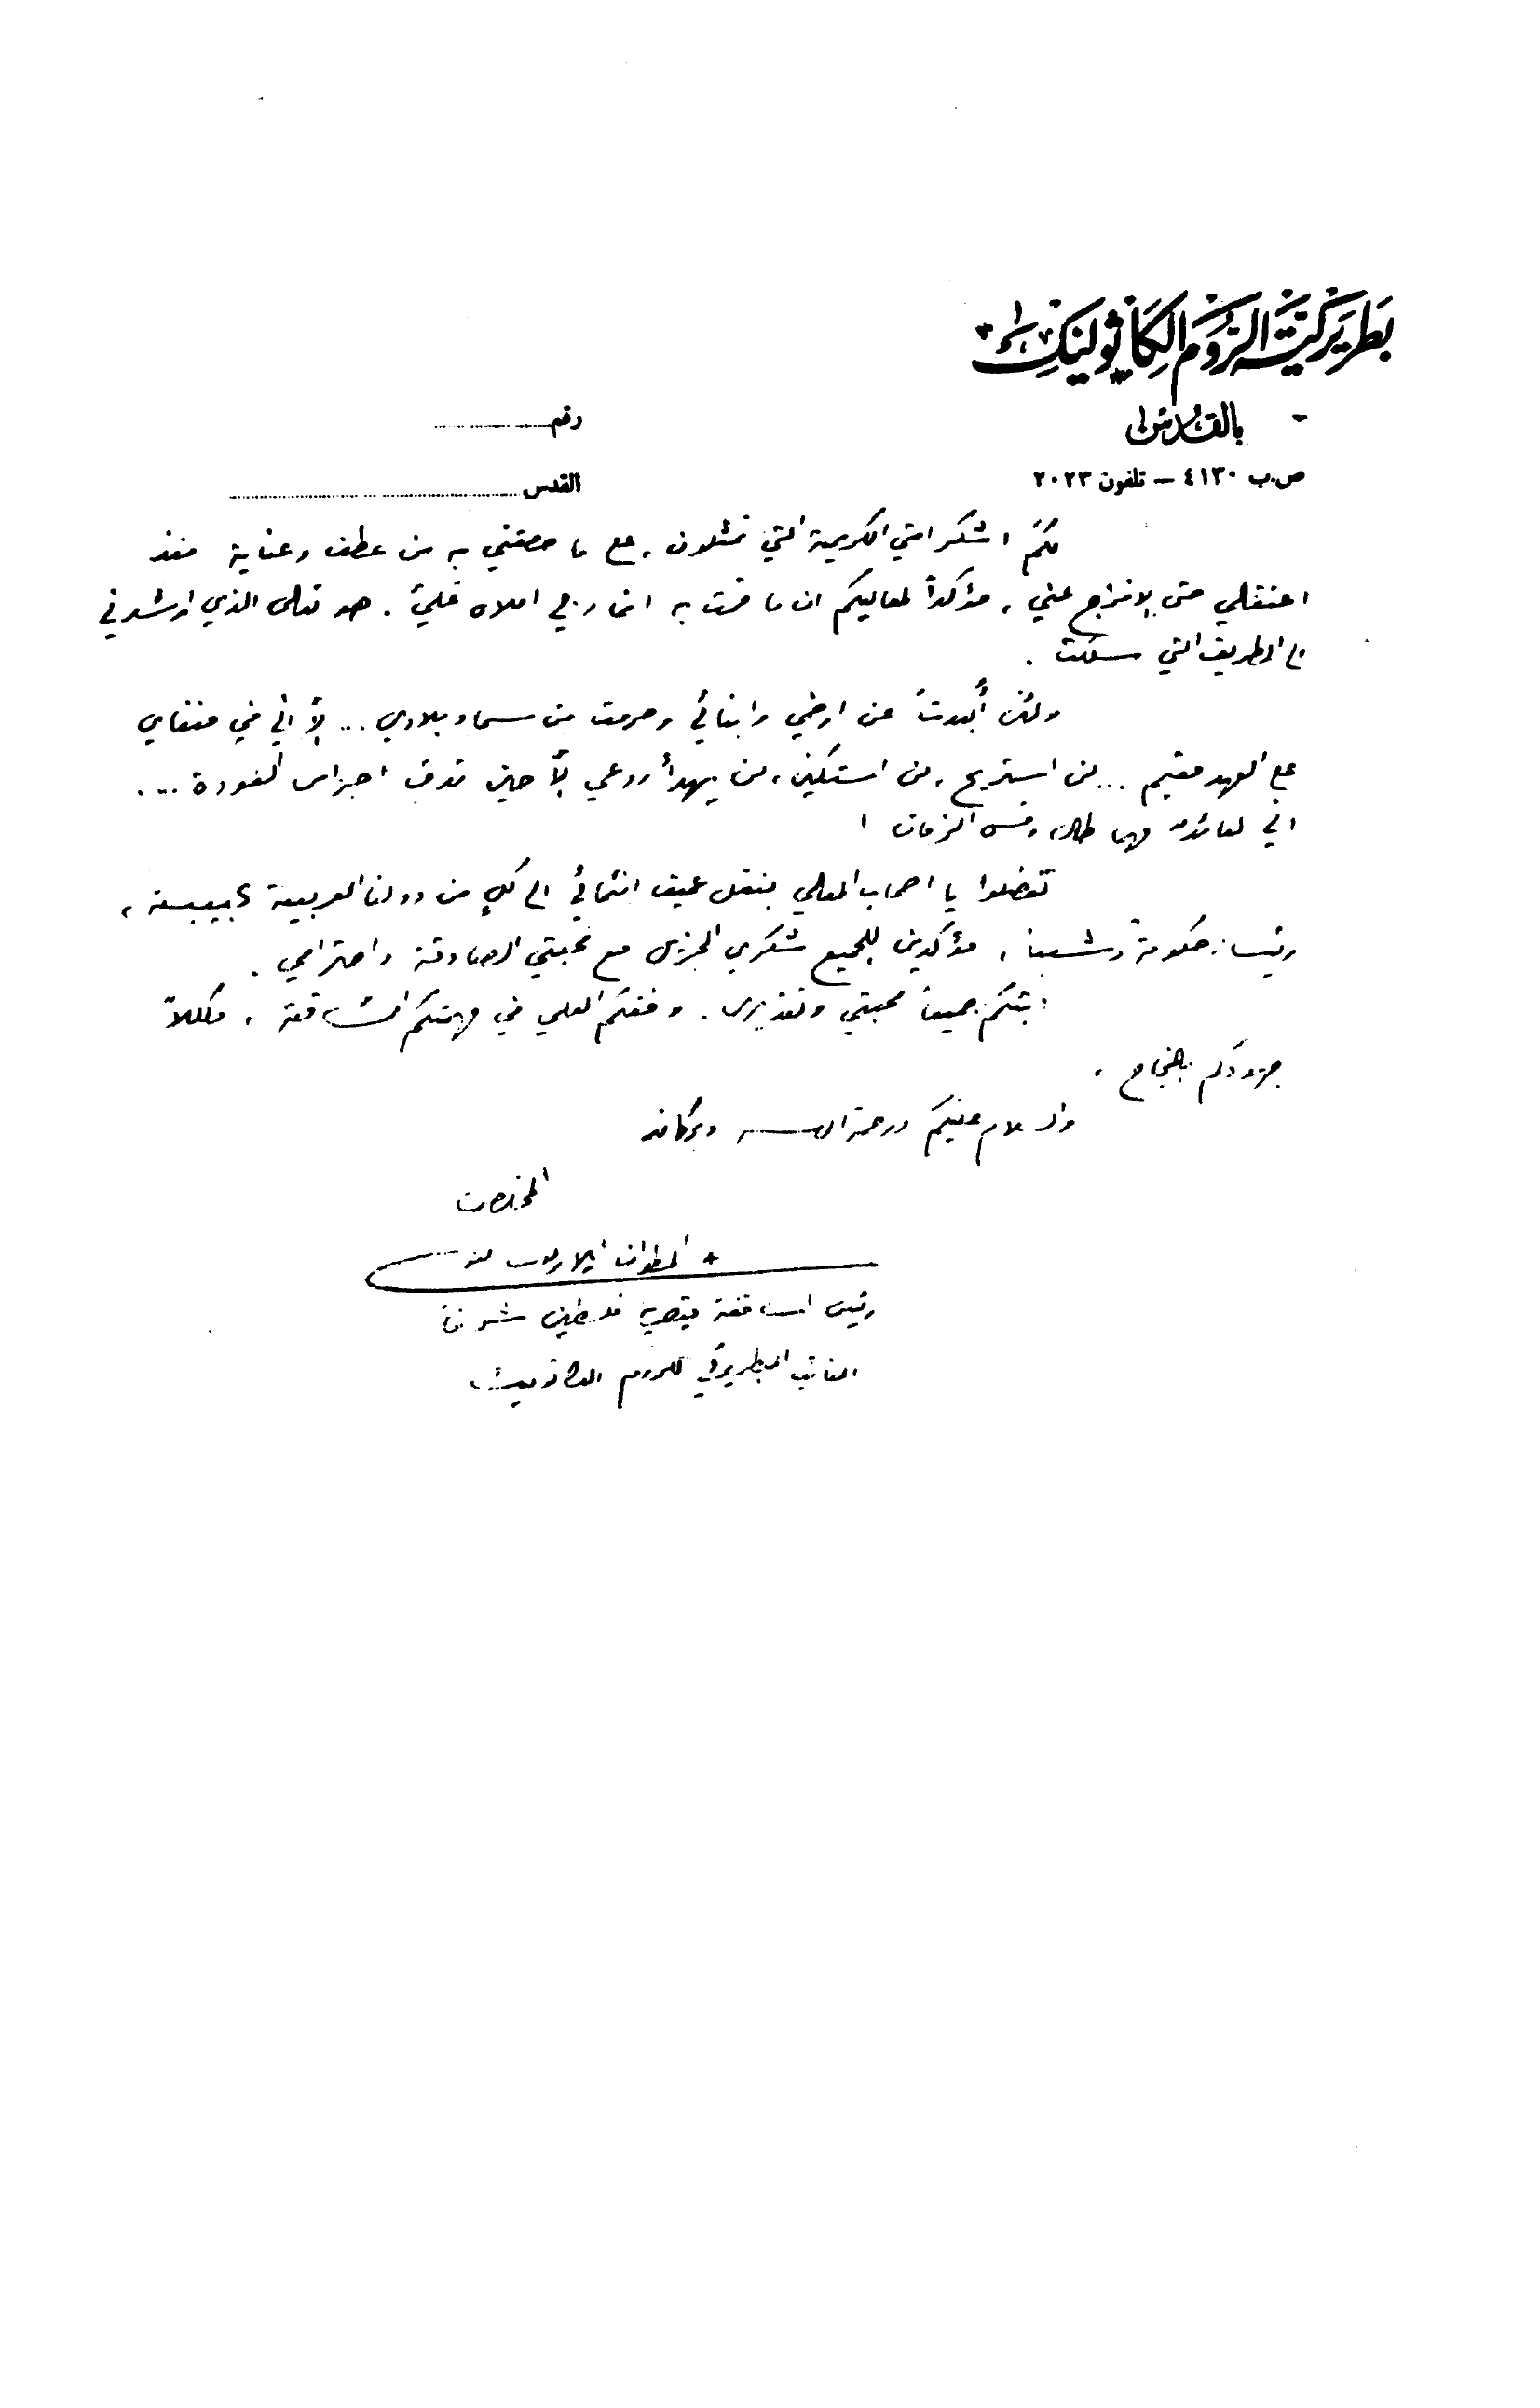 بطريركية الروم الكاثوليك
بالقدس
ص.ب ٤١٣٠ – تلفون ٢٠٢٣
رقم
القدس
لكم اشكر امتي الكريمة التي تمثلون، على ما خصتني به من عطف وعناية منذ
اعتقالي حتى الافراج عني، مؤكداً لمعاليكم ان ما قمت به انما ربي املاه عليّ. هو تعالى الذي ارشدني
الى الطريق التي سلكت.
ولئن أُبعدتُ عن ارضي وابنائي وحرمت من سماء بلادي ... الا اني في منفاي
على العهد مقيم ... لن استريح، لن استكين، لن يهدأ روعي الاّ حين تدق اجراس العودة ....
اني لعائد مهما طال الزمان !
تفضلوا يا اصحاب المعالي بنقل عميق انتمائي الى كلٍ من دولنا العربية الحبيبة،
رئيساً، حكومة وشعباً، مؤكدين للجميع شكري الجزيل مع محبتي الصادقة واحترامي.
ابثكم جميعاً محبتي وتقديري. وفقكم العلي في مهمتكم الشاقة، مكللاً
جهودكم بالنجاح،
والسلام عليكم ورحمة الله وبركاته
المخلص
+ المطران ايلاريون
رئيس اساقفة قيصرية فلسطين شرفاً
النائب البطريركي للروم الكاثوليك